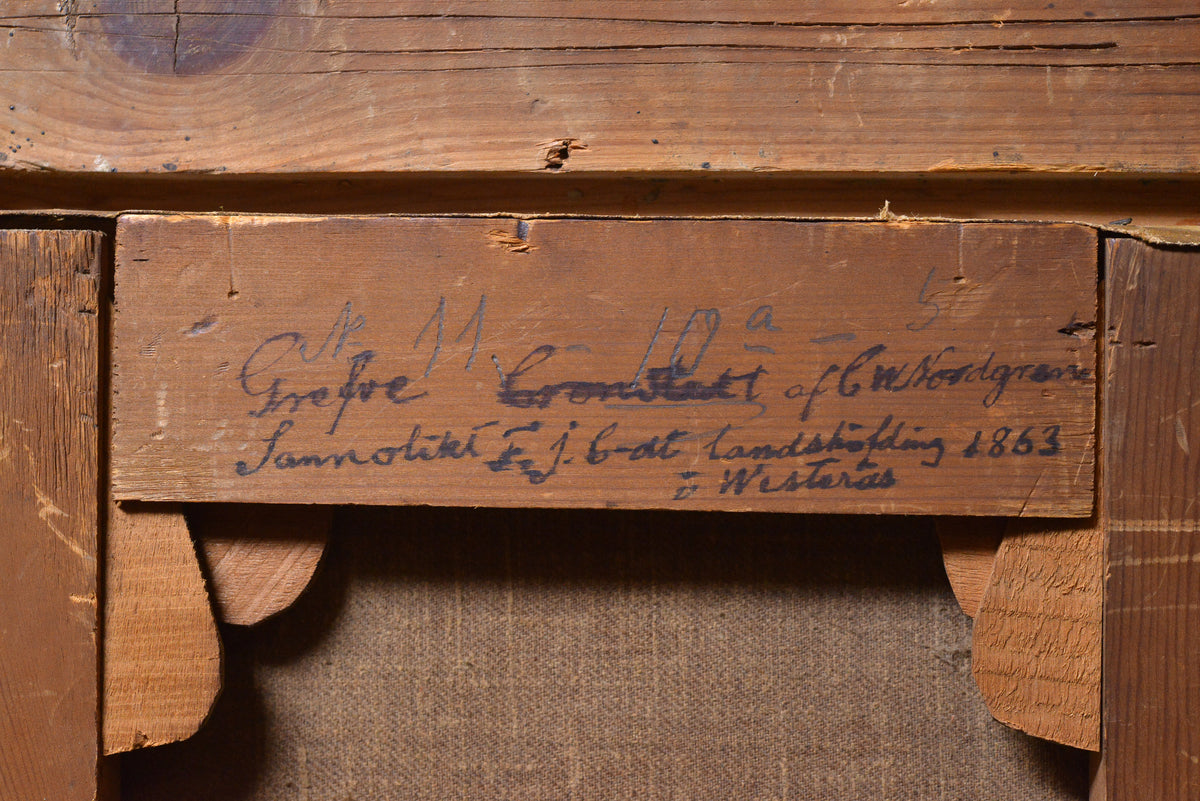 N 11 - 10 a - 5
Grefve Cronstedt af C W Nordgrene
Sannolikt F. j. C-dt landshöfding 1863
i Westerås